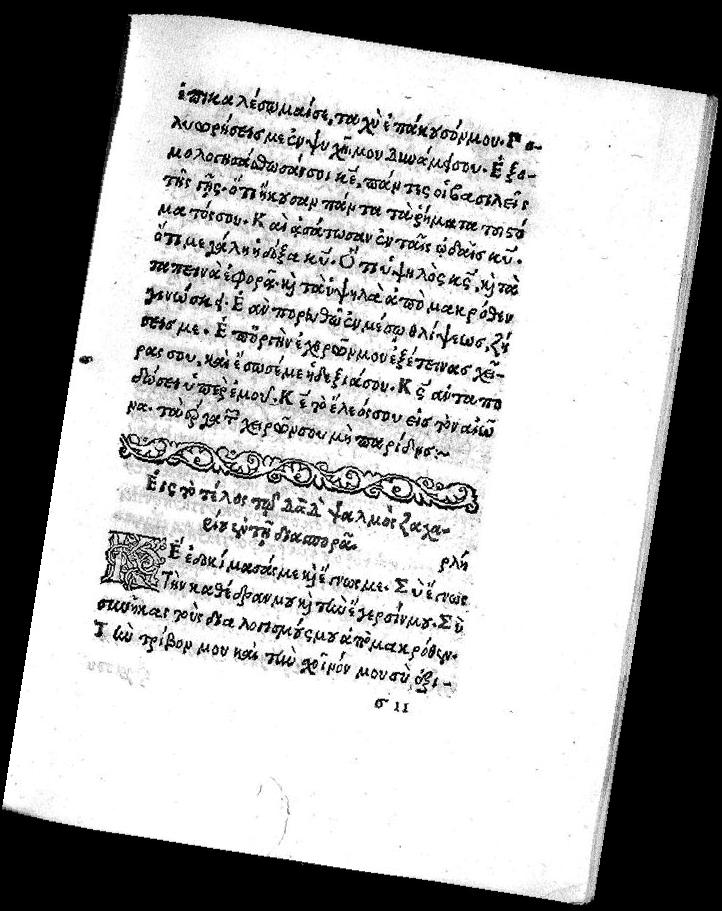 ἐπικαλέσωμαίσε, ταχὺ ἐπάκουσόν μου. Πο-
λυωρήσεις με ἐν ψυχῇ μου δυνάμει σου. Ἐξο-
μολογησάσθωσάν σοι κε̅, πάντες οἱ βασιλεῖς
τῆς γῆς. ὅτι ἤκουσαν πάντα τὰ ῥήματα τοῦ στό
ματός σου. Καὶ ᾀσάτωσαν ἐν ταῖς ᾠδαῖς κυ̅.
ὅτι μεγάλη ἡ δόξα κυ̅. Ὅτι ὑψηλὸς κς̅, καὶ τὰ
ταπεινὰ ἐφορᾷ. καὶ τὰ ὑψηλὰ ἀπὸ μακρόθεν
γινώσκει. Ἐὰν πορευθῶ ἐν μέσῳ θλίψεως, ζή
σεις με. Ἐπ' ὀργὴν ἐχθρῶν μου ἐξέτεινας χεῖ-
ρας σου, καὶ ἔσωσέ με ἡ δεξιά σου. Κς̅ ἀνταπο
δώσει ὑπὲρ ἐμοῦ. Κε̅ τὸ ἔλεός σου εἰς τὸν αἰῶ
να. τὰ ἔργα τῶν χειρῶν σου μὴ παρίδῃς :~
Εἰς τὸ τέλος τῷ Δα̅δ̅ ψαλμὸς ζαχα-
ρίου ἐν τῇ διασπορᾷ.
ρλη
Κε̅ ἐδοκίμασάς με καὶ ἔγνως με. Σὺ ἔγνως
τὴν καθέδραν μου καὶ τὴν ἔγερσίν μου. Σὺ
συνῆκας τοὺς διαλογισμούς μου ἀπὸ μακρόθεν.
Τὴν τρίβον μου καὶ τὴν σχοῖνόν μου σὺ ἐξι-
σ ΙΙ